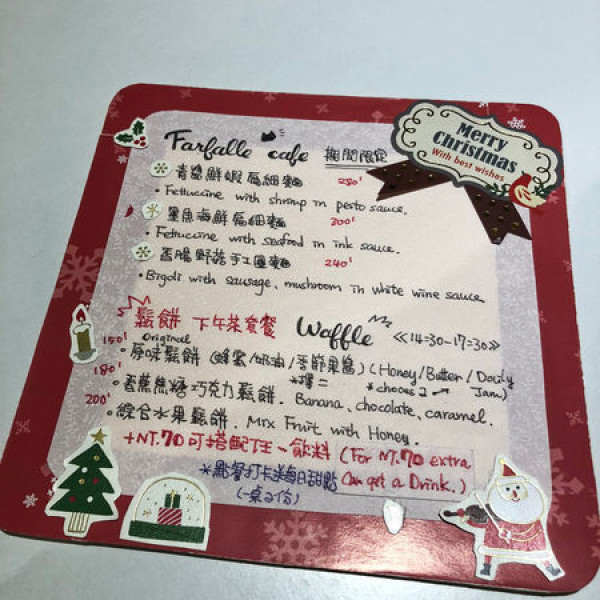 Merry
Christmas
With best wishes
Farfalle cafe 期間限定
青醬鮮蝦扁細麵 280
• Fettuccine with shrimp in pesto sauce.
墨魚海鮮扁細麵 300
• Fettuccine with seafood in ink sauce.
香腸野菇手工圓麵 240
• Bigoli with sausage, mushroom in white wine sauce
鬆餅 下午茶套餐 Waffle <<14:30-17:30>>
Original
150 • 原味鬆餅 (蜂蜜/奶油/季節果醬) (Honey/Butter/Daily Jam)
*擇二 *choose 2
180 • 香蕉焦糖巧克力鬆餅. Banana, chocolate, caramel.
200 • 綜合水果鬆餅. Mix Fruit with Honey.
+NT.70可搭配任一飲料 (For NT.70 extra
Can get a Drink.)
*點餐打卡送每日甜點
(一桌2份)